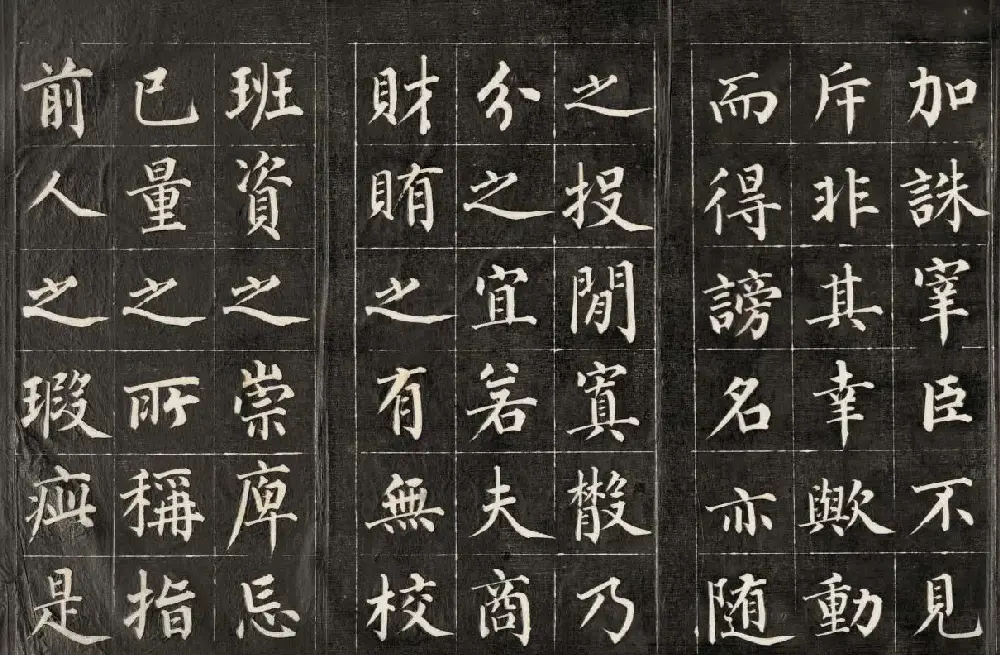 加誅宰臣不見
斥非其幸歟動
而得謗名亦随
之投閒寘散乃
分之宜若夫商
財賄之有無校
班資之崇庳忘
已量之所稱指
前人之瑕疵是